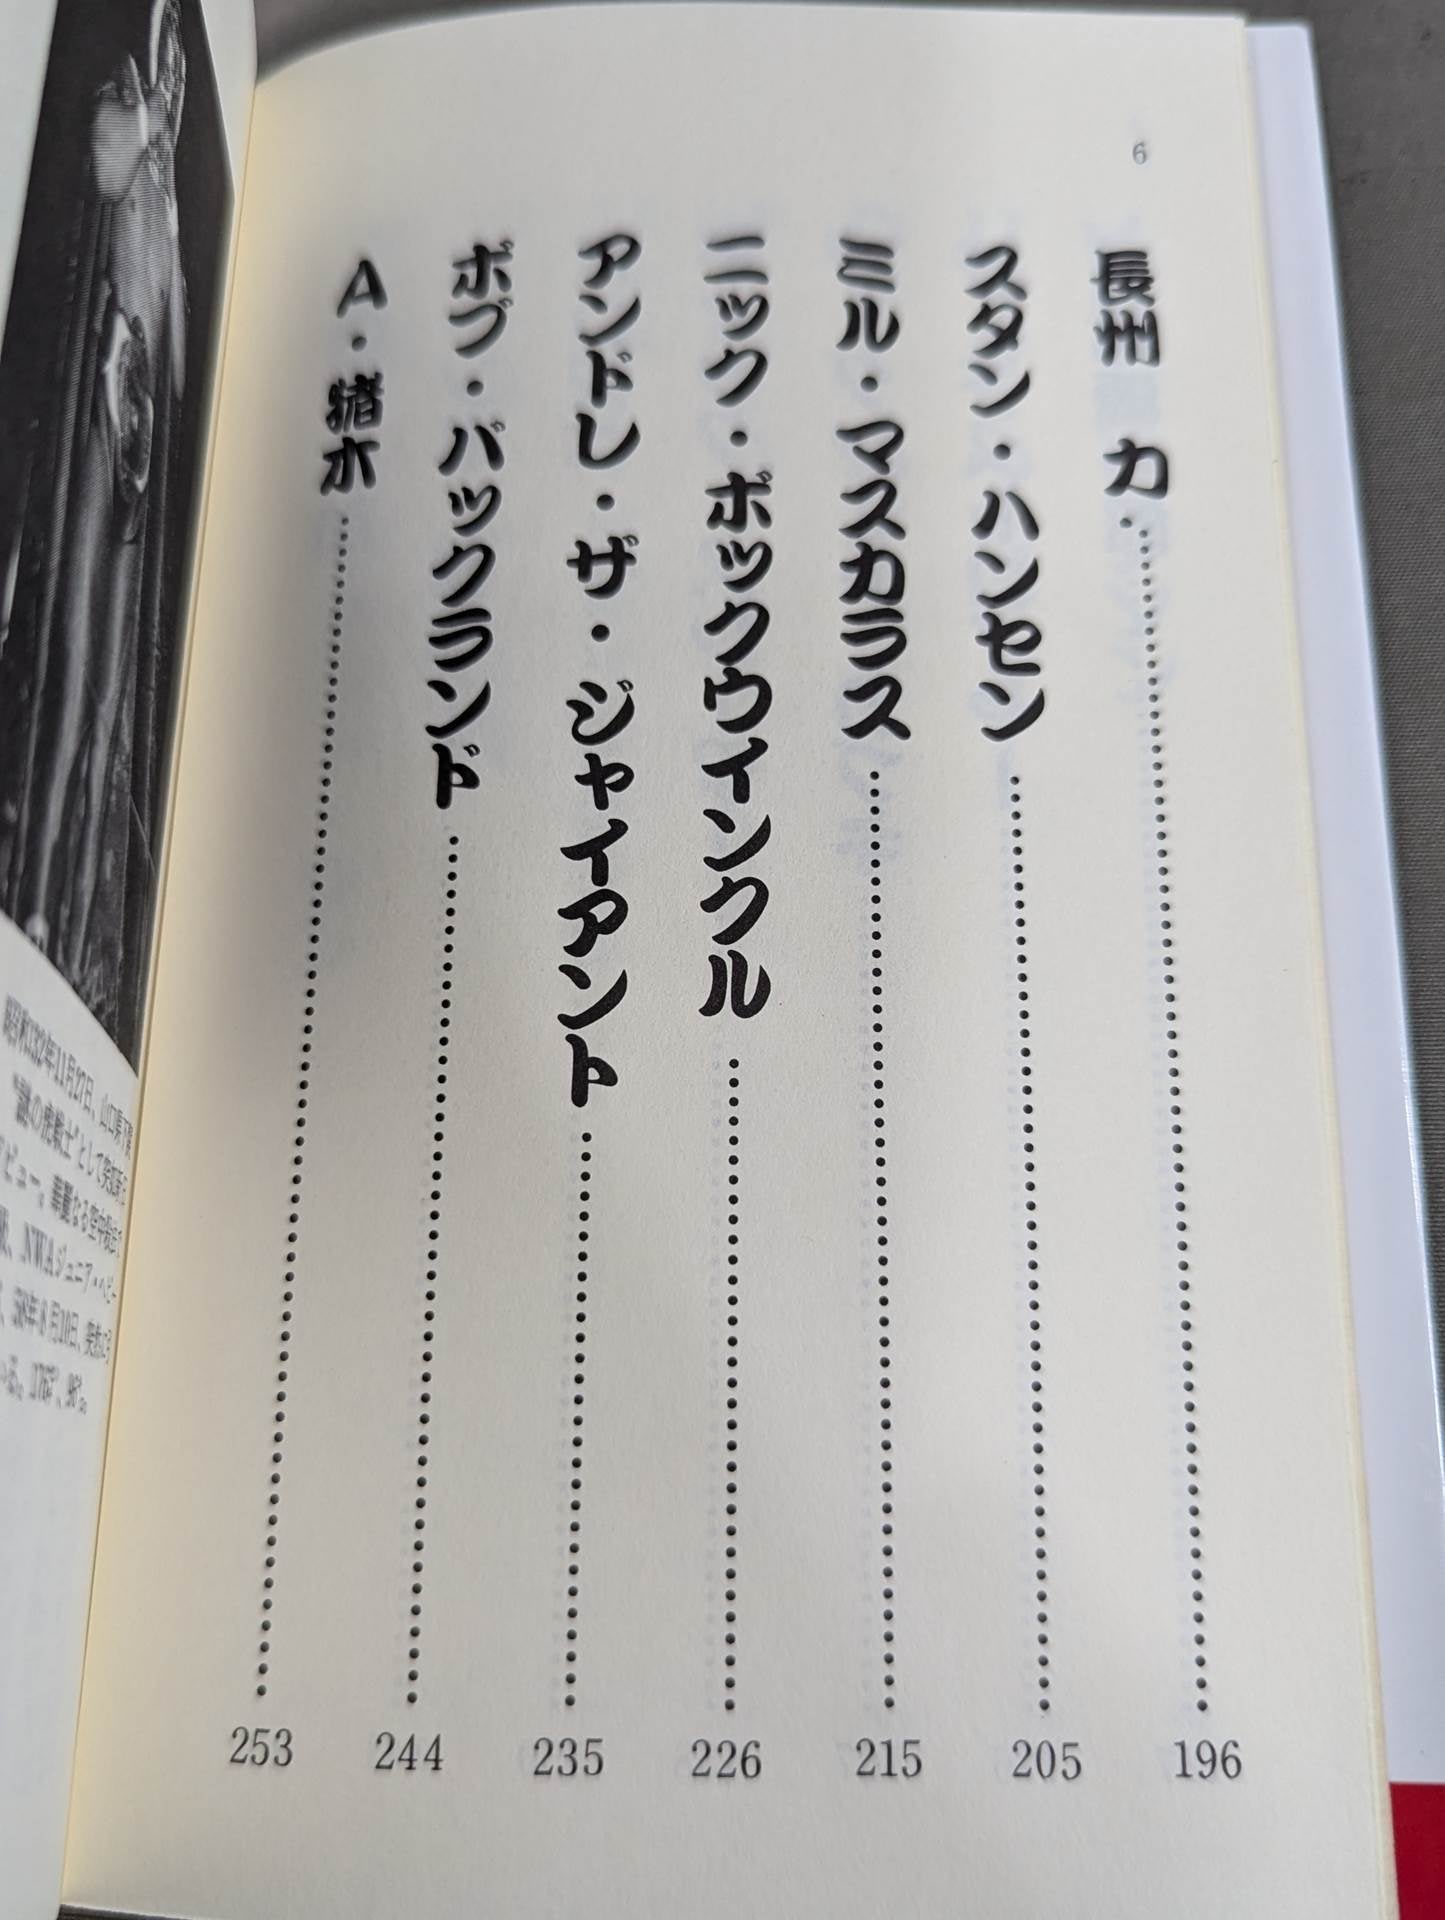 6
長州 力 196
スタン・ハンセン 205
ミル・マスカラス 215
ニック・ボックウインクル 226
アンドレ・ザ・ジャイアント 235
ボブ・バックランド 244
A・猪木 253
昭和32年11月27日、山口県下関
"謎の虎戦士"として
デビュー。華麗なる空中殺法で
、NWAジュニア・ヘビー
、58年8月10日、突然に引